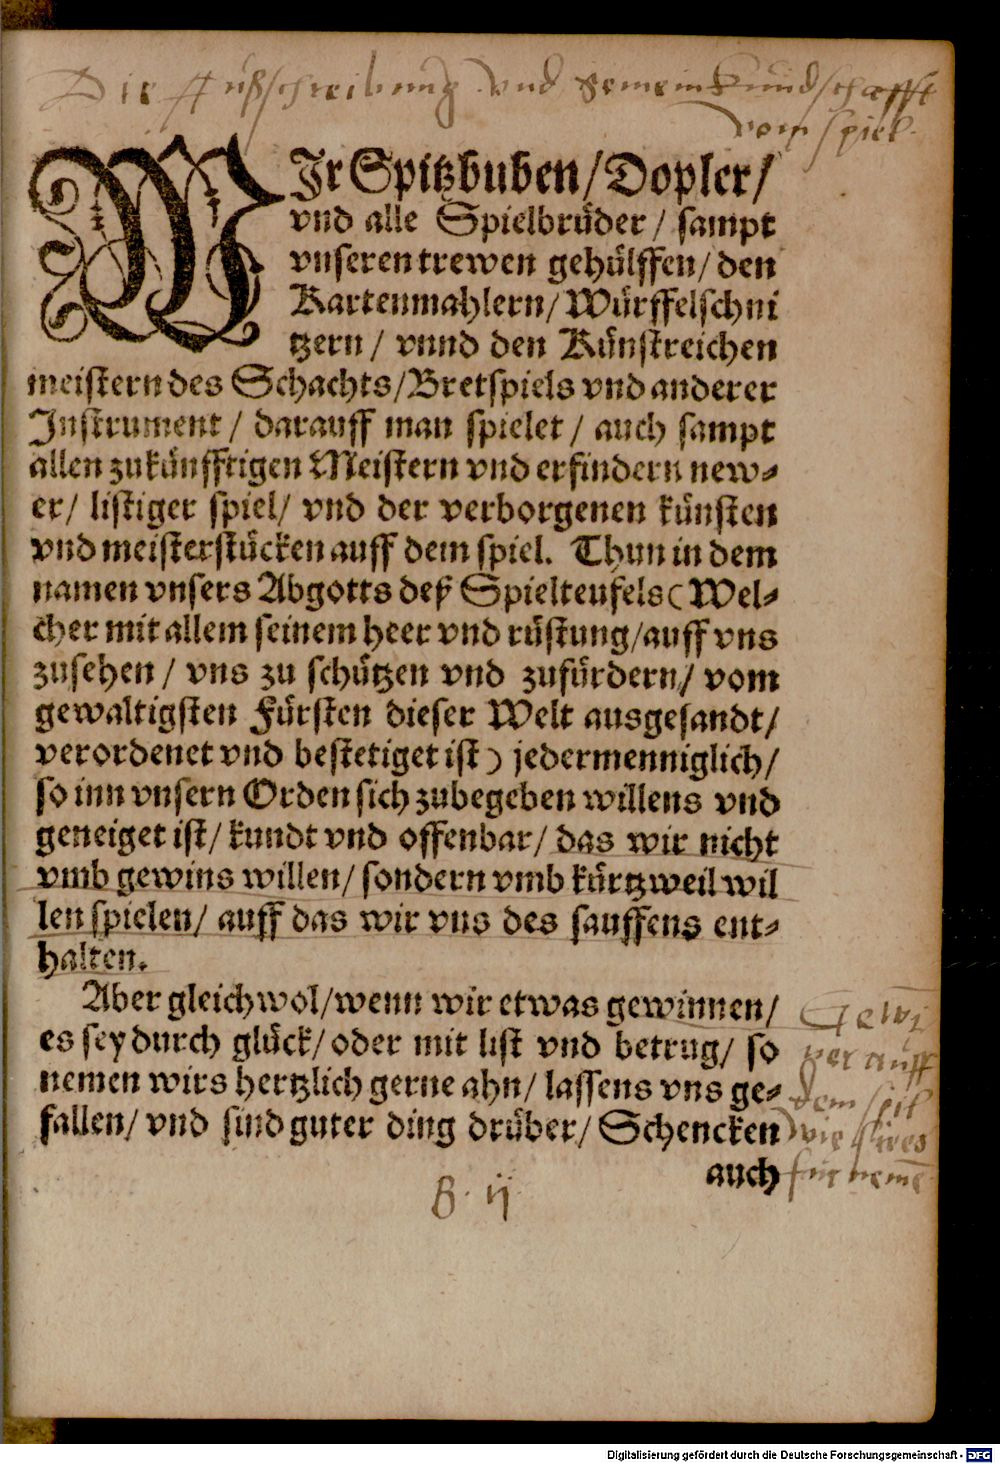 Die Außschreibung vnd gemein kundschafft
vom spiel.
WJr Spitzbuben/ Dopler/
vnd alle Spielbrüder/ sampt
vnseren trewen gehülffen/ den
Kartenmahlern/ Würffelschni
tzern/ vnnd den Künstreichen
meistern des Schachts/ Bretspiels vnd anderer
Jnstrument/ darauff man spielet/ auch sampt
allen zukünfftigen Meistern vnd erfindern new-
er/ listiger spiel/ vnd der verborgenen künsten
vnd meisterstücken auff dem spiel. Thun in dem
namen vnsers Abgotts deß Spielteufels (Wel-
cher mit allem seinem heer vnd rüstung/ auff vns
zusehen/ vns zu schützen vnd zufürdern/ vom
gewaltigsten Fürsten dieser Welt ausgesandt/
verordenet vnd bestetiget ist) jedermenniglich/
so inn vnsern Orden sich zubegeben willens vnd
geneiget ist/ kundt vnd offenbar/ das wir nicht
vmb gewins willen/ sondern vmb kürtzweil wil
len spielen/ auff das wir vns des sauffens ent-
halten.
Aber gleichwol/ wenn wir etwas gewinnen/
es sey durch glück/ oder mit list vnd betrug/ so
nemen wirs hertzlich gerne ahn/ lassens vns ge-
fallen/ vnd sind guter ding drüber/ Schencken
auch
auff
dem spil
wie sie es
B. ij
Digitalisierung gefördert durch die Deutsche Forschungsgemeinschaft - DFG